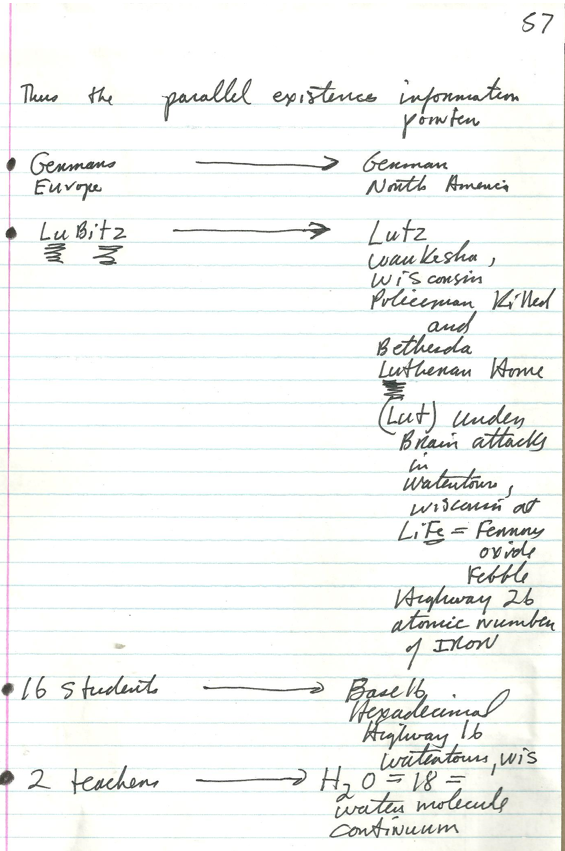 57
Thus the parallel existence information
Germans
Europe
German
North America
LuBitz
Lutz
Waukesha,
Wisconsin
Policeman Killed
and
Bethesda
Lutheran Home
(Lut) under
Brain attacks
in
Watertown,
Wisconsin at
LiFe = Ferrous
oxide
Highway 26
atomic number
of IRON
16 students
Base 16
Hexadecimal
Highway 16
Watertown, Wis
2 teachers
H2O = 18 =
water molecule
continuum